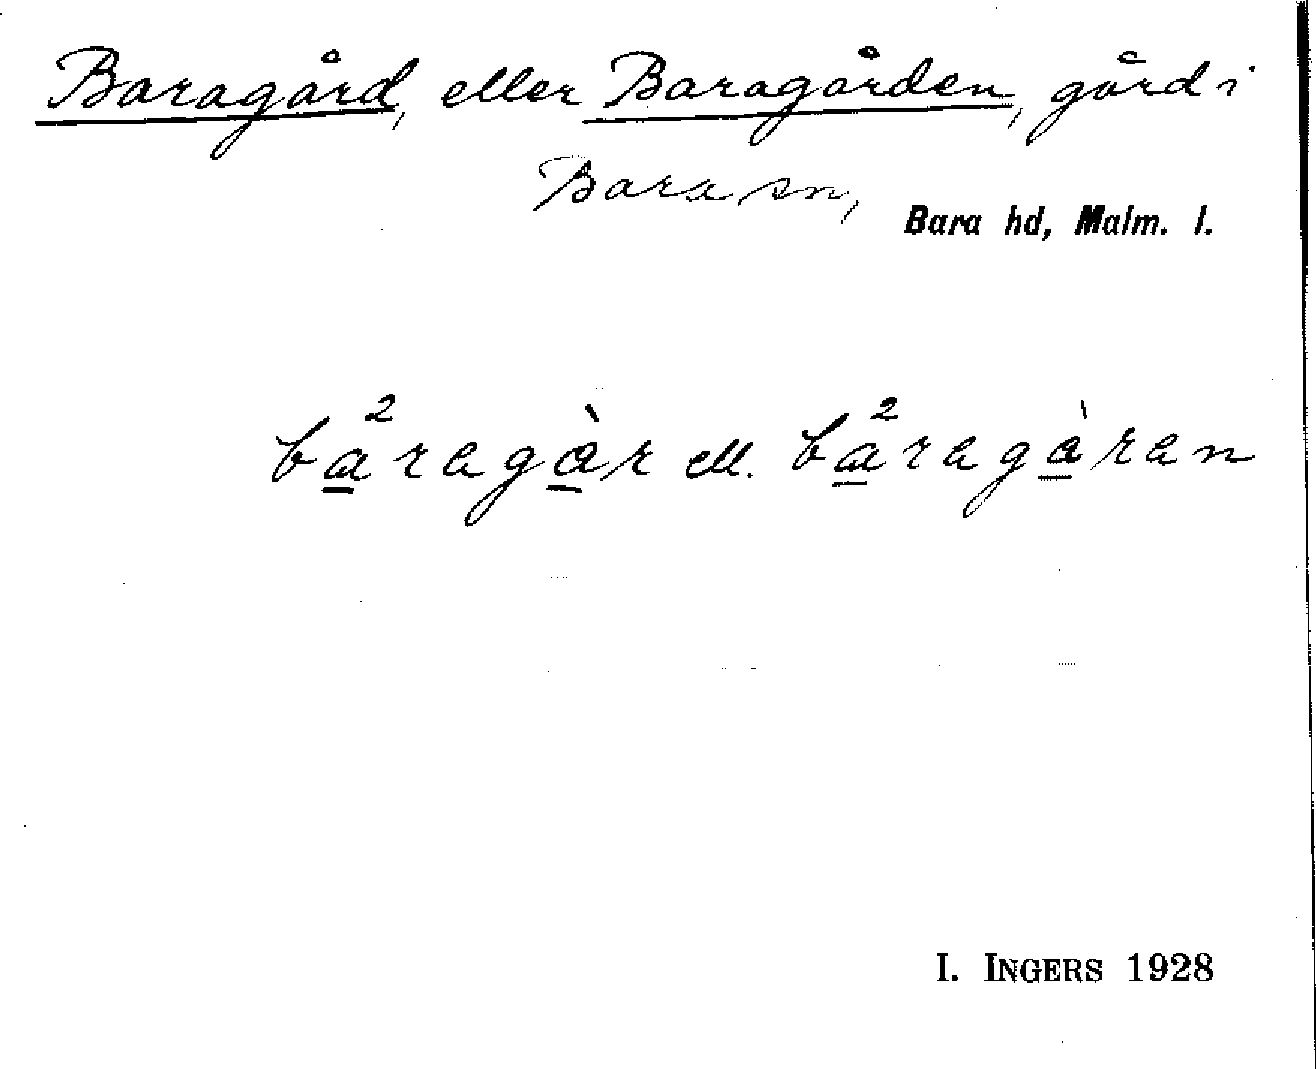 Baragård, eller Baragården, gård i
Bara sn,
Bara hd, Malm. l.
bå̱²ragà̱r ell. bå̱²ragà̱ran
I. INGERS 1928